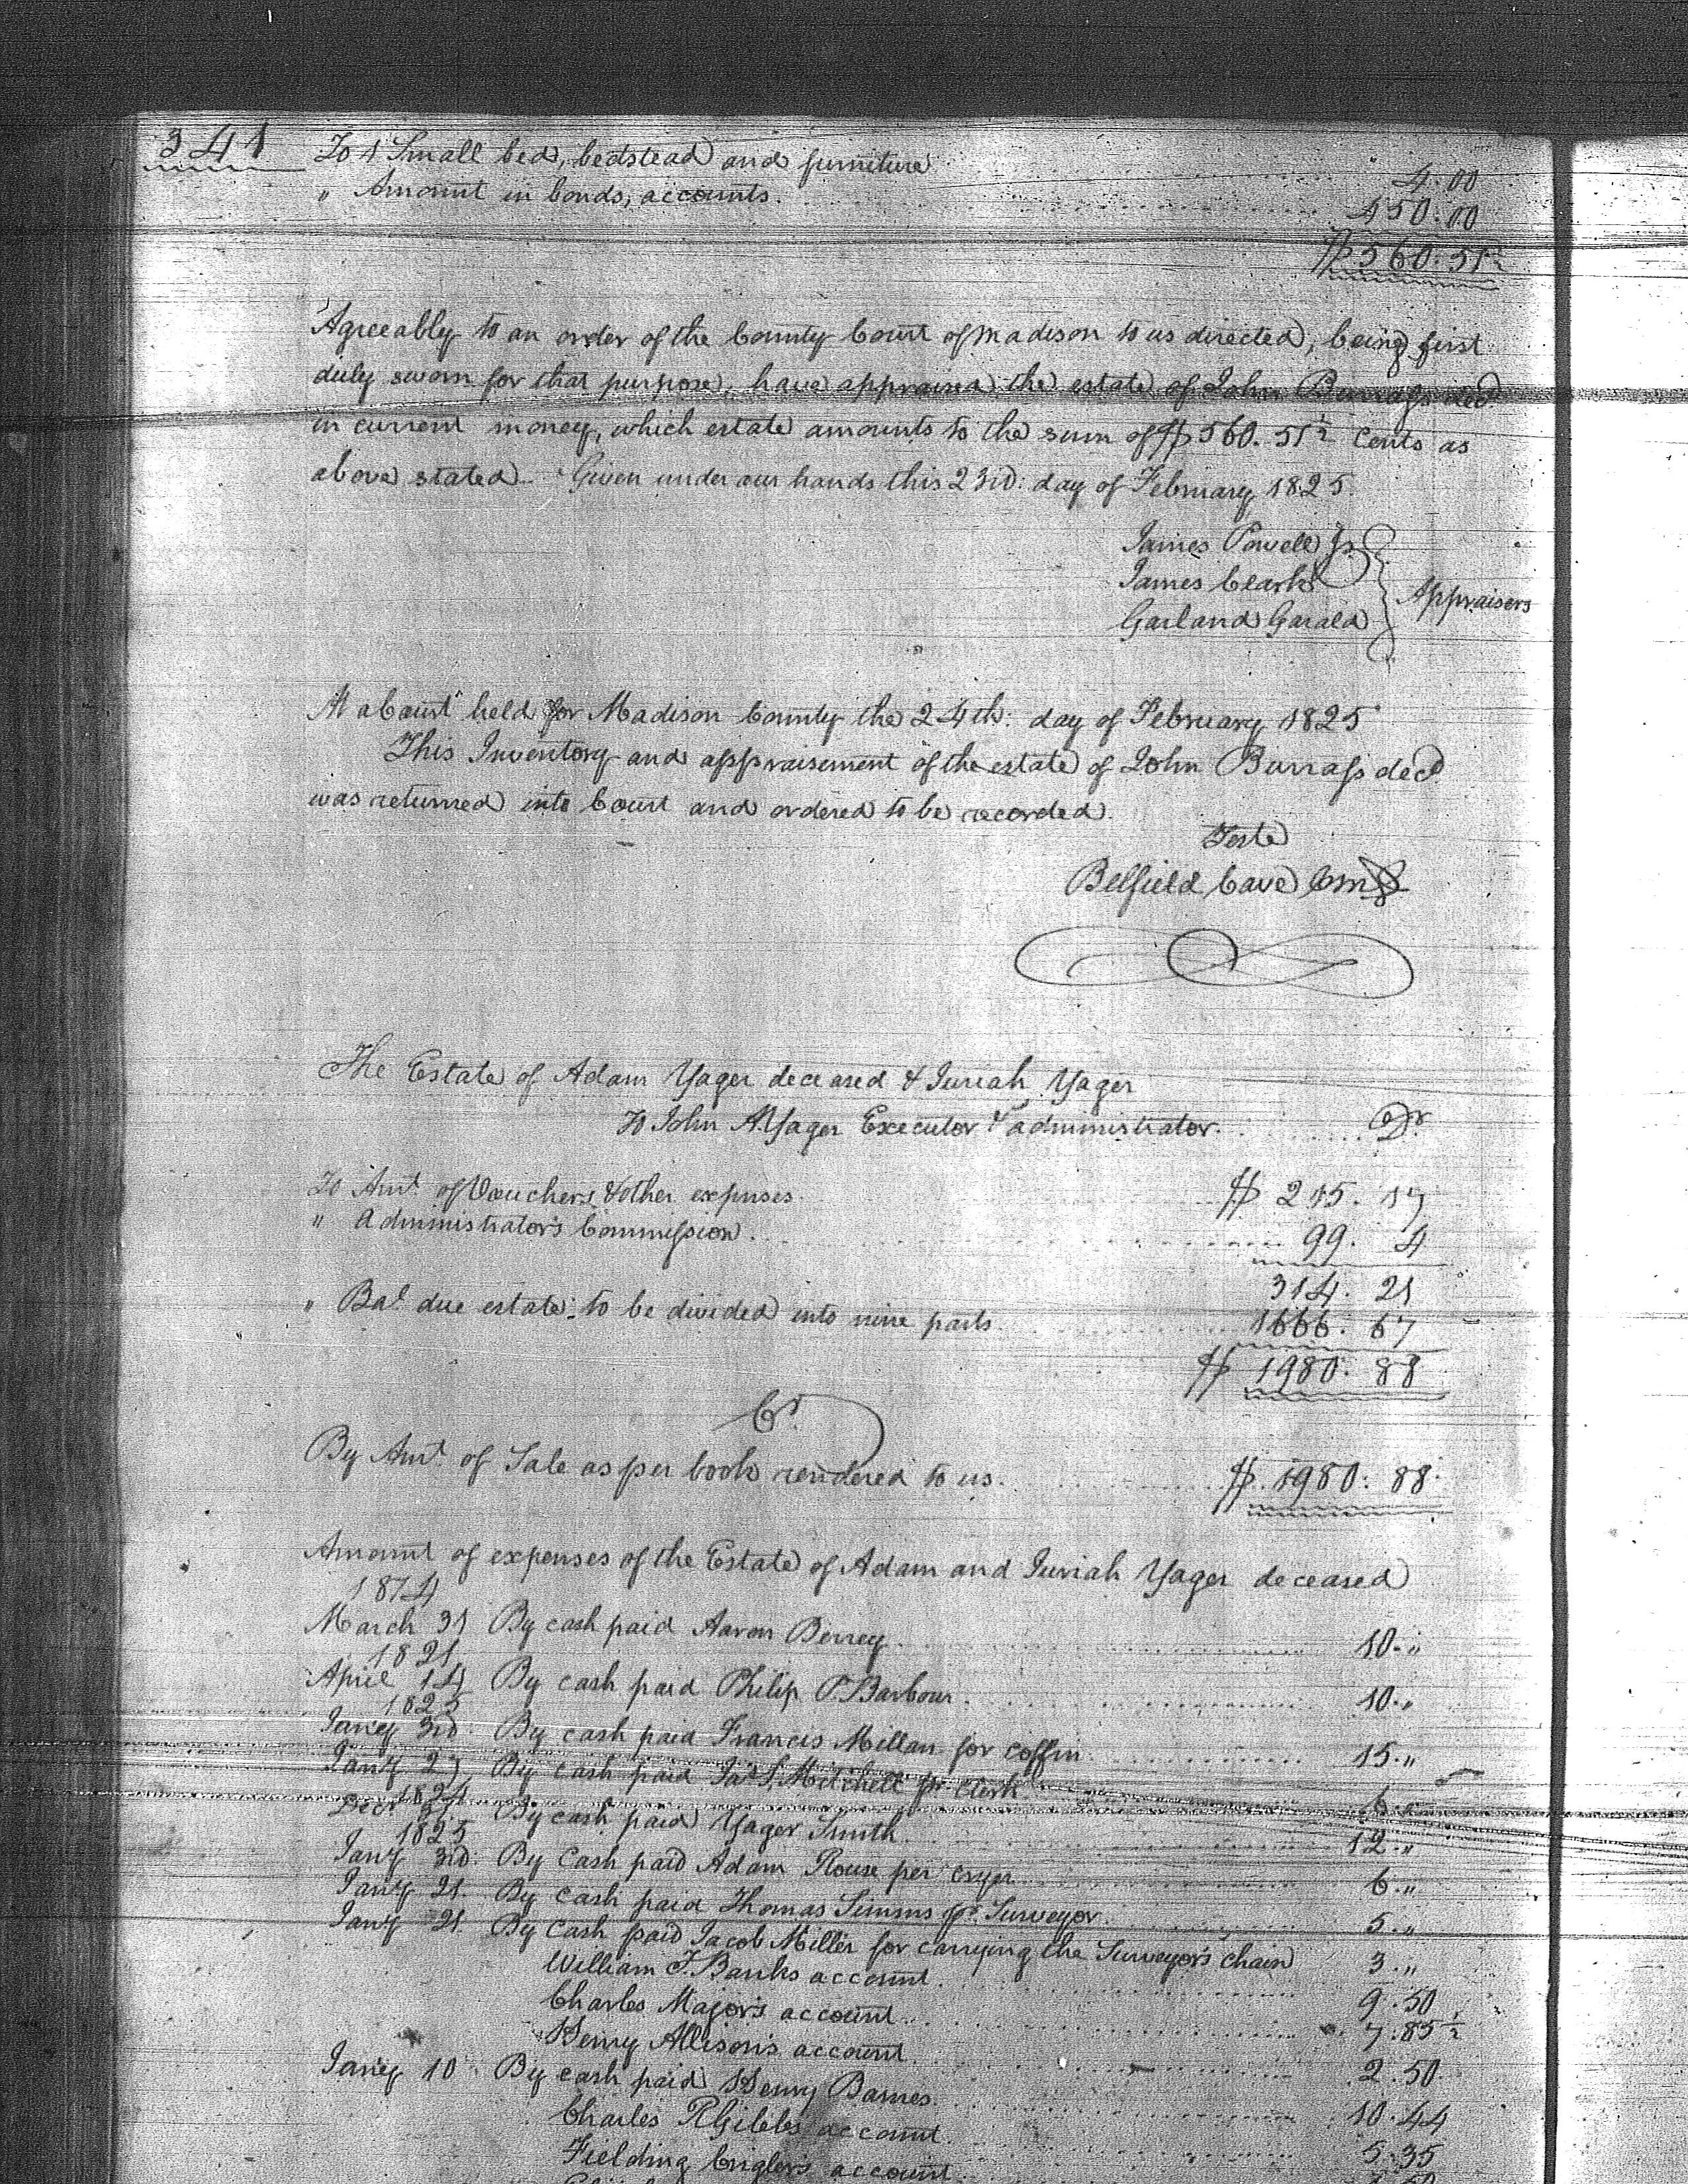 341
To 1 Small bed, bedstead and furniture 4.00
" Amount in bonds, accounts. 450.00
$560.51½
Agreeably to an order of the County Court of Madison to us directed, being first
duly sworn for that purpose, have appraised the estate of John Burrass decd
in current money, which estate amounts to the sum of $560.51½ Cents as
above stated. Given under our hands this 23rd: day of February 1825.
James Powell Jr.
James Clark
Garland Garald
Appraisers
At a Court held for Madison County the 24th: day of February 1825
This Inventory and appraisement of the estate of John Burrass decd
was returned into Court and ordered to be recorded.
Teste
Belfield Cave CMC
The Estate of Adam Yager deceased & Juriah Yager
To John A. Yager Executor & administrator. Dr
To Amt. of Vouchers & other expenses. $ 215. 17
" Administrator's Commission. 99. 4
314. 21
" Bal. due estate to be divided into nine parts 1666. 67
$ 1980. 88
Cr.
By Amt. of Sale as per book rendered to us. $. 1980. 88
Amount of expenses of the Estate of Adam and Juriah Yager deceased
1824
March 31 By cash paid Aaron Berrey 10."
1821
April 14 By cash paid Philip P. Barbour. 10."
1825
Jany 3rd. By cash paid Francis Millan for coffin 15."
Jany 27 By cash paid Jas. S. Mitchell pr. Clerk 6."
1824
Decr By cash paid Yager Smith 12."
1825
Jany 3rd. By Cash paid Adam Rouse per cryer 6."
Jany 21. By cash paid Thomas Simms pr. Surveyor 5."
Jany 21 By Cash paid Jacob Miller for carrying the Surveyor's chain 3."
William F. Banks account. 9.50
Charles Major's account 7.85½
Henry Allison's account 2.50
Jany 10. By cash paid Henry Barnes. 10.44
Charles R Gibbs account. 5.35
Fielding Crigler's account